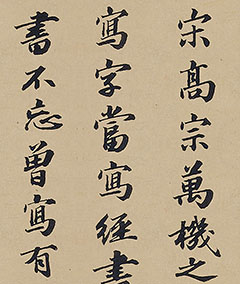 宋高宗萬機之
寫字當寫經書
書不忘曽寫有